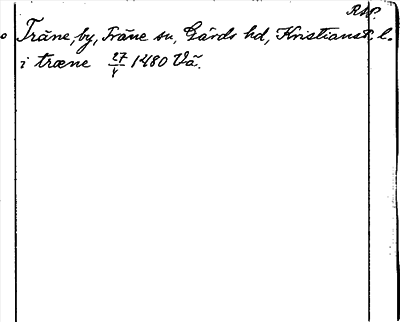 RAP.
Träne, by, Träne sn, Gärds hd, Kristianst. l.
i træne 27/4 1480 Vä.